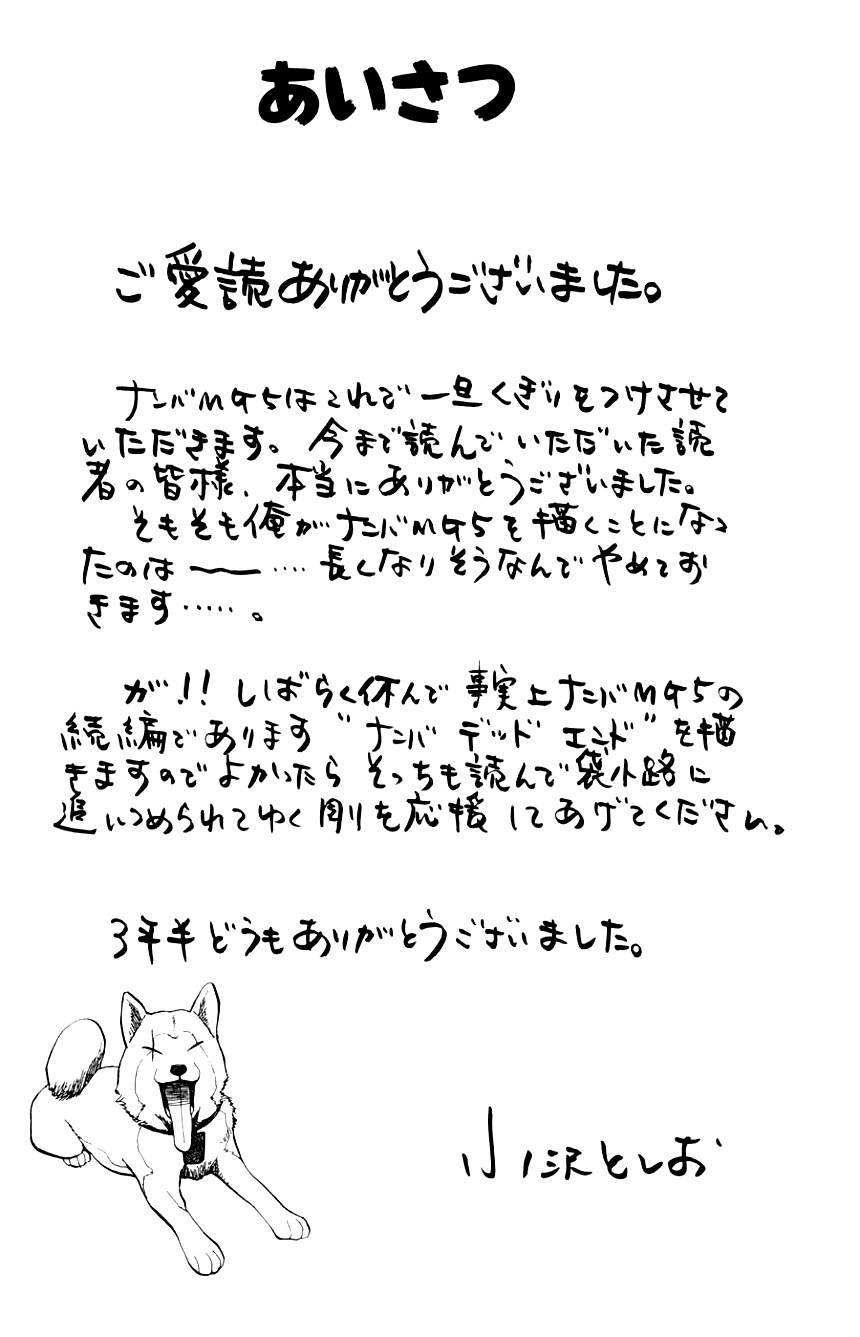 あいさつ
ご愛読ありがとうございました。
ナンバMG5はこれで一旦くぎりをつけさせて
いただきます。今まで読んでいただいた読
者の皆様、本当にありがとうございました。
そもそも俺がナンバMG5を描くことになっ
たのは――‥‥長くなりそうなんでやめてお
きます‥‥‥。
が!!しばらく休んで事実上ナンバMG5の
続編であります〝ナンバ デッド エンド〟を描
きますのでよかったらそっちも読んで袋小路に
追いつめられてゆく剛を応援してあげてください。
3年半どうもありがとうございました。
小沢としお